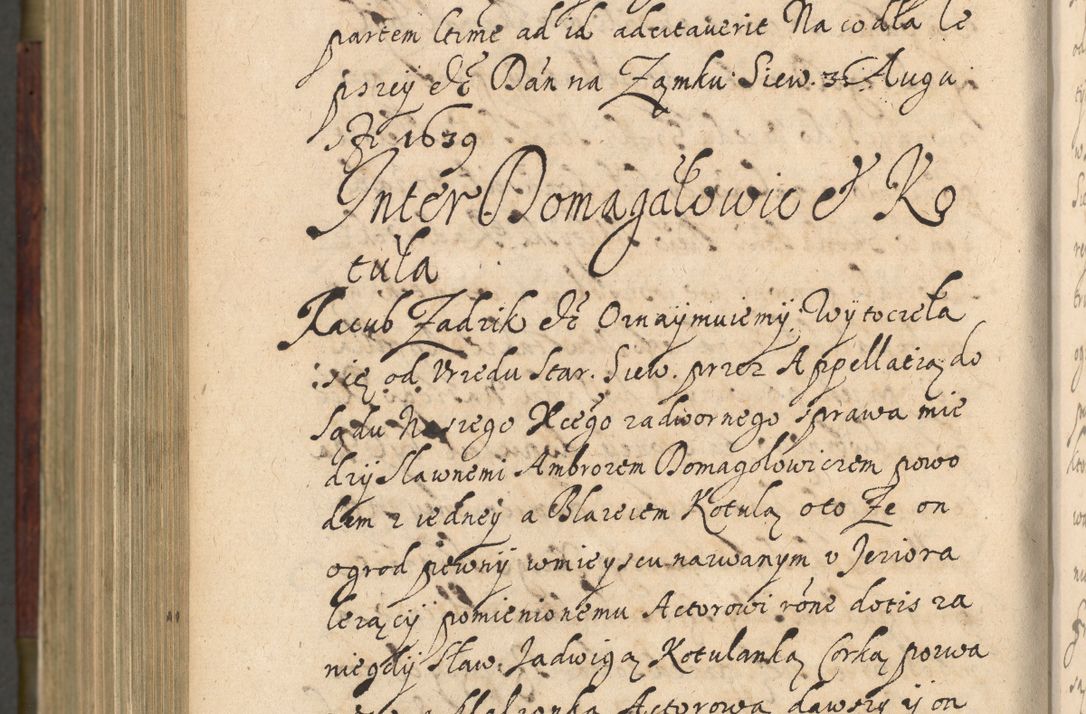 partem ltime ad id adcitauerit Na co dla le
pszey etc Dan na Zamku Siew. 31 Augu
sti 1639
Inter Domagałowic et Ko
tuła
Iacub Zadzik etc Oznaymuiemy Wytoczeła
się od Vrzedu Star. Siew. przez Appellatią do
Sądu Naszego Xcego zadwornego sprawa mie
dzy Sławnemi Ambrozem Domagołowiczem powo
dem z iedney a Błazeiem Kotulą oto Ze on
ogrod pewny wmieyscu nazwanym v Jeziora
lezący pomienionemu Actorowi rone dotis za
niegdy Sław. Jadwigą Kotulanką Corką pozwa
Małzonką Actorowa dawszy y on